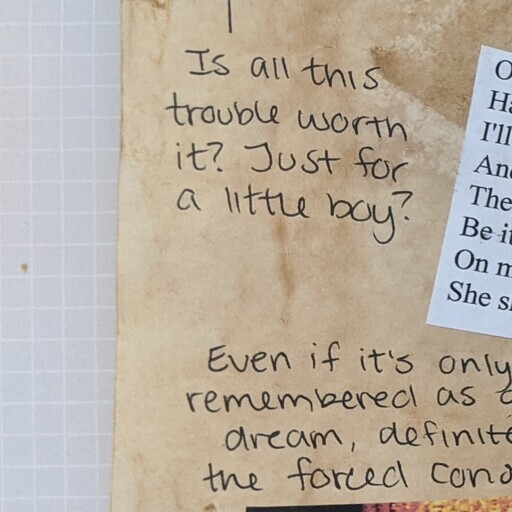 Is all this
trouble worth
it? Just for
a little boy?
I'll
The
Be it
On
She
Even if it's only
remembered as a
dream,
the forced